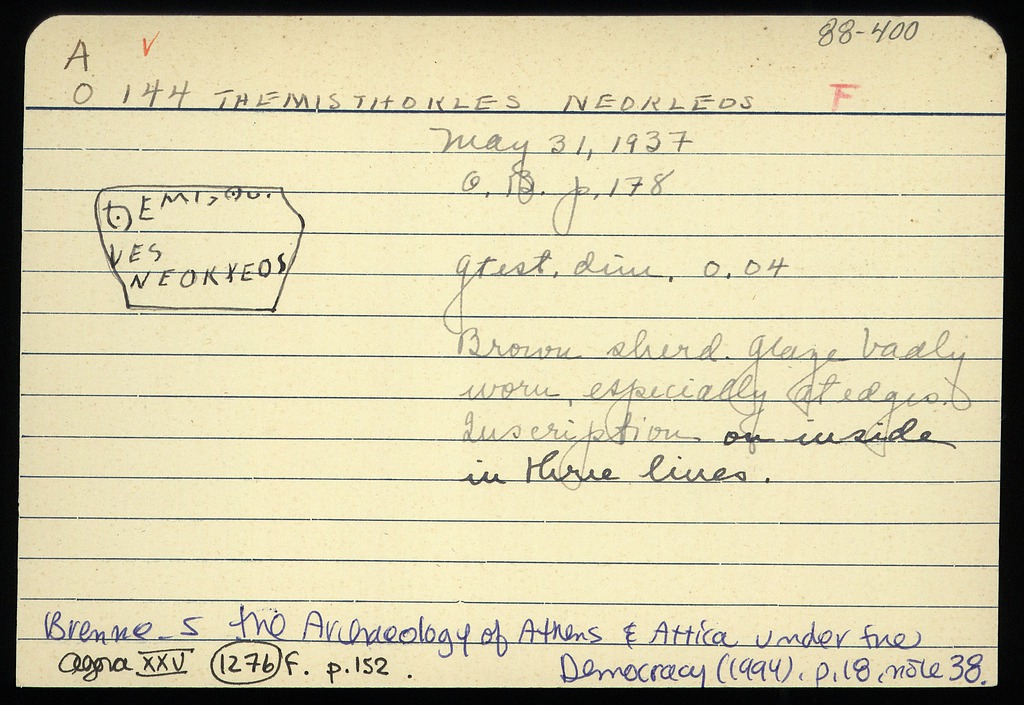 88-400
A V
O 144 THEMISTHOKLES NEOKLEOS F
May 31, 1937
O. B. p. 178
gtest. dim. 0.04
Brown sherd. Glaze badly
worn, especially at edges.
Inscription on inside
in three lines.
EMIS
LES
NEOKLEOS
Brenne_S The Archaeology of Athens & Attica under the
Democracy (1994), p.18, note 38.
Agora XXV 1276 f. p.152.